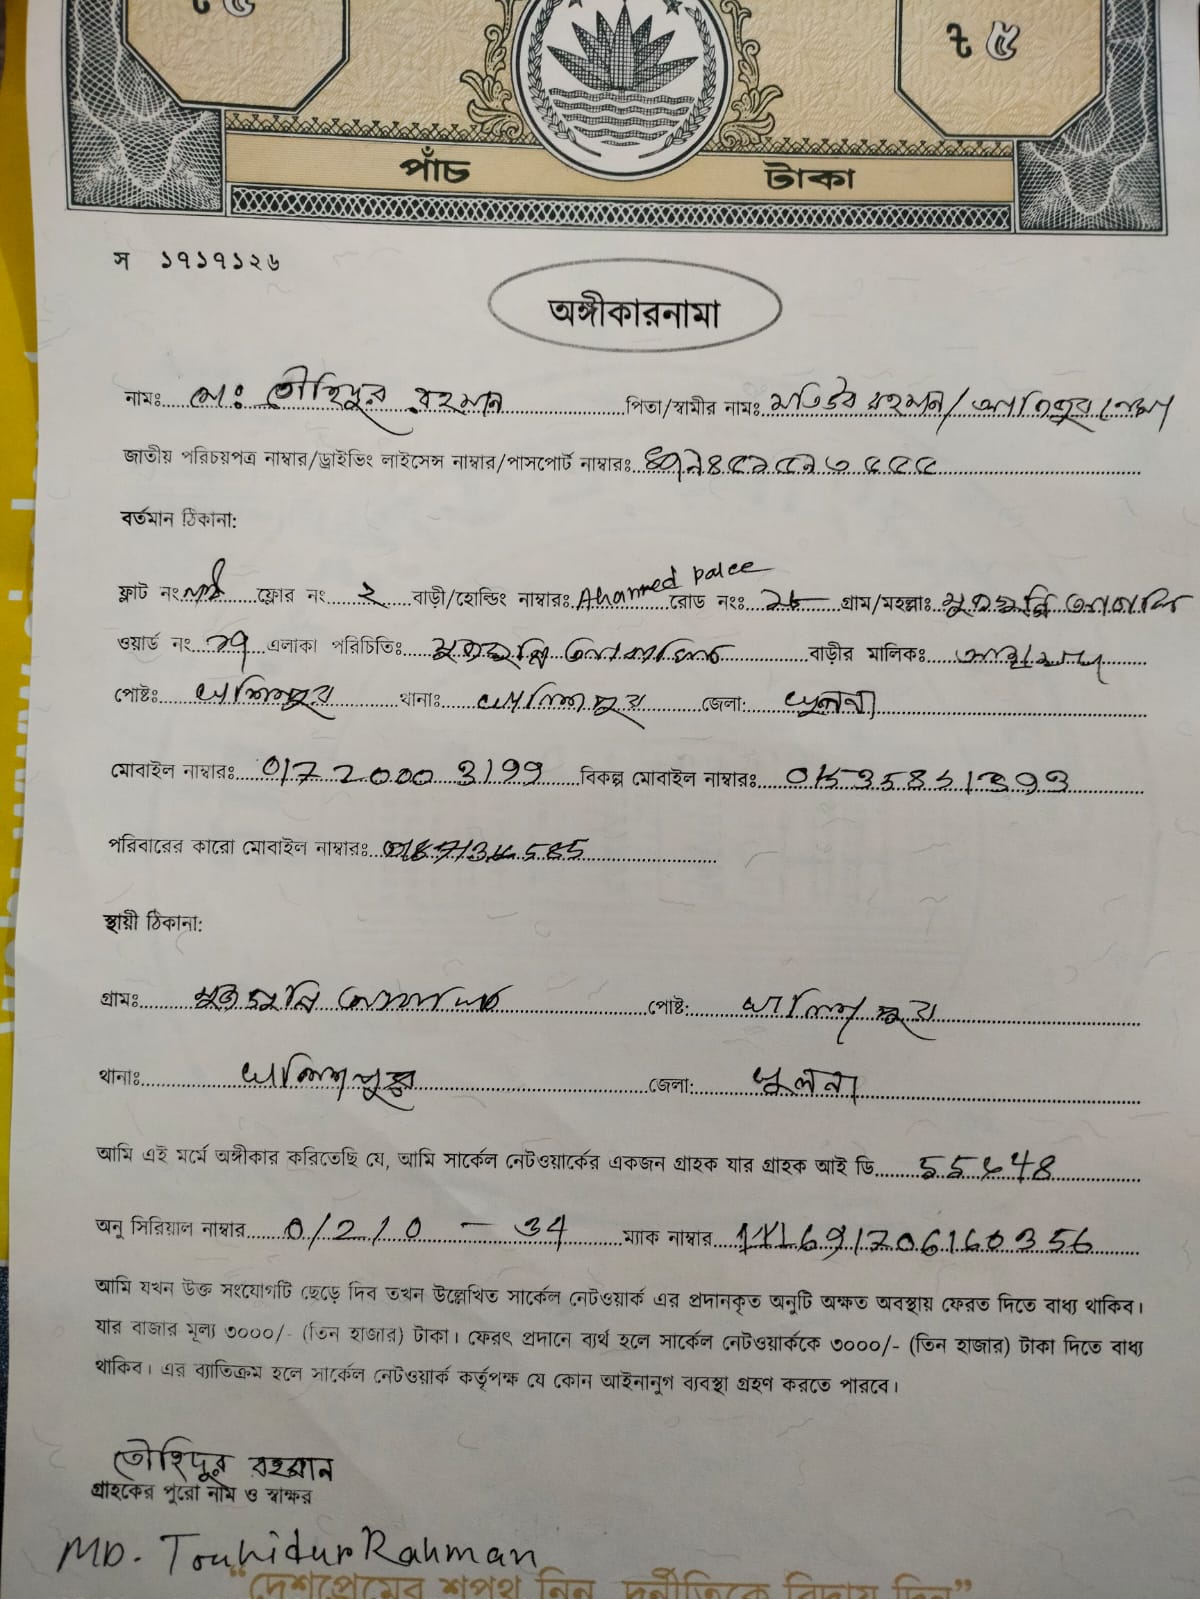 ৳ ৫ ৳ ৫
পাঁচ টাকা
স ১৭১৭১২৬
অঙ্গীকারনামা
নামঃ মোঃ তৌহিদুর রহমান পিতা/স্বামীর নামঃ মতিউর রহমান/
জাতীয় পরিচয়পত্র নাম্বার/ড্রাইভিং লাইসেন্স নাম্বার/পাসপোর্ট নাম্বারঃ
বর্তমান ঠিকানা:
ফ্লাট নং ফ্লোর নং ২ বাড়ী/হোল্ডিং নাম্বারঃ Ahammed palce রোড নংঃ গ্রাম/মহল্লাঃ
ওয়ার্ড নং এলাকা পরিচিতিঃ বাড়ীর মালিকঃ
পোষ্টঃ খালিশপুর থানাঃ খালিশপুর জেলা: খুলনা
মোবাইল নাম্বারঃ 0172000 3199 বিকল্প মোবাইল নাম্বারঃ
পরিবারের কারো মোবাইল নাম্বারঃ
স্থায়ী ঠিকানা:
গ্রামঃ পোষ্ট: খালিশপুর
থানাঃ খালিশপুর জেলা: খুলনা
আমি এই মর্মে অঙ্গীকার করিতেছি যে, আমি সার্কেল নেটওয়ার্কের একজন গ্রাহক যার গ্রাহক আই ডি
অনু সিরিয়াল নাম্বার 0/210 — 34 ম্যাক নাম্বার
আমি যখন উক্ত সংযোগটি ছেড়ে দিব তখন উল্লেখিত সার্কেল নেটওয়ার্ক এর প্রদানকৃত অনুটি অক্ষত অবস্থায় ফেরত দিতে বাধ্য থাকিব।
যার বাজার মূল্য ৩০০০/- (তিন হাজার) টাকা। ফেরৎ প্রদানে ব্যর্থ হলে সার্কেল নেটওয়ার্ককে ৩০০০/- (তিন হাজার) টাকা দিতে বাধ্য
থাকিব। এর ব্যাতিক্রম হলে সার্কেল নেটওয়ার্ক কর্তৃপক্ষ যে কোন আইনানুগ ব্যবস্থা গ্রহণ করতে পারবে।
তৌহিদুর রহমান
গ্রাহকের পুরো নাম ও স্বাক্ষর
MD. Touhidur Rahman
“দেশপ্রেমের শপথ নিন, দুর্নীতিকে বিদায় দিন”